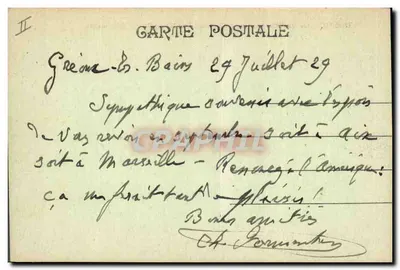 II
CARTE POSTALE
Gréoux-Es-Bains 29 Juillet 29
Sympathique souvenir avec l'espoir
de vous revoir en septembre soit à Aix
soit à Marseille - Renoncez à l'Amérique !
ça me ferait tant de plaisir !
Bonnes amitiés